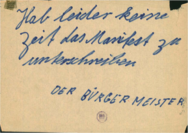 Hab leider keine
Zeit das Manifest zu
unterschreiben
DER BÜRGERMEISTER